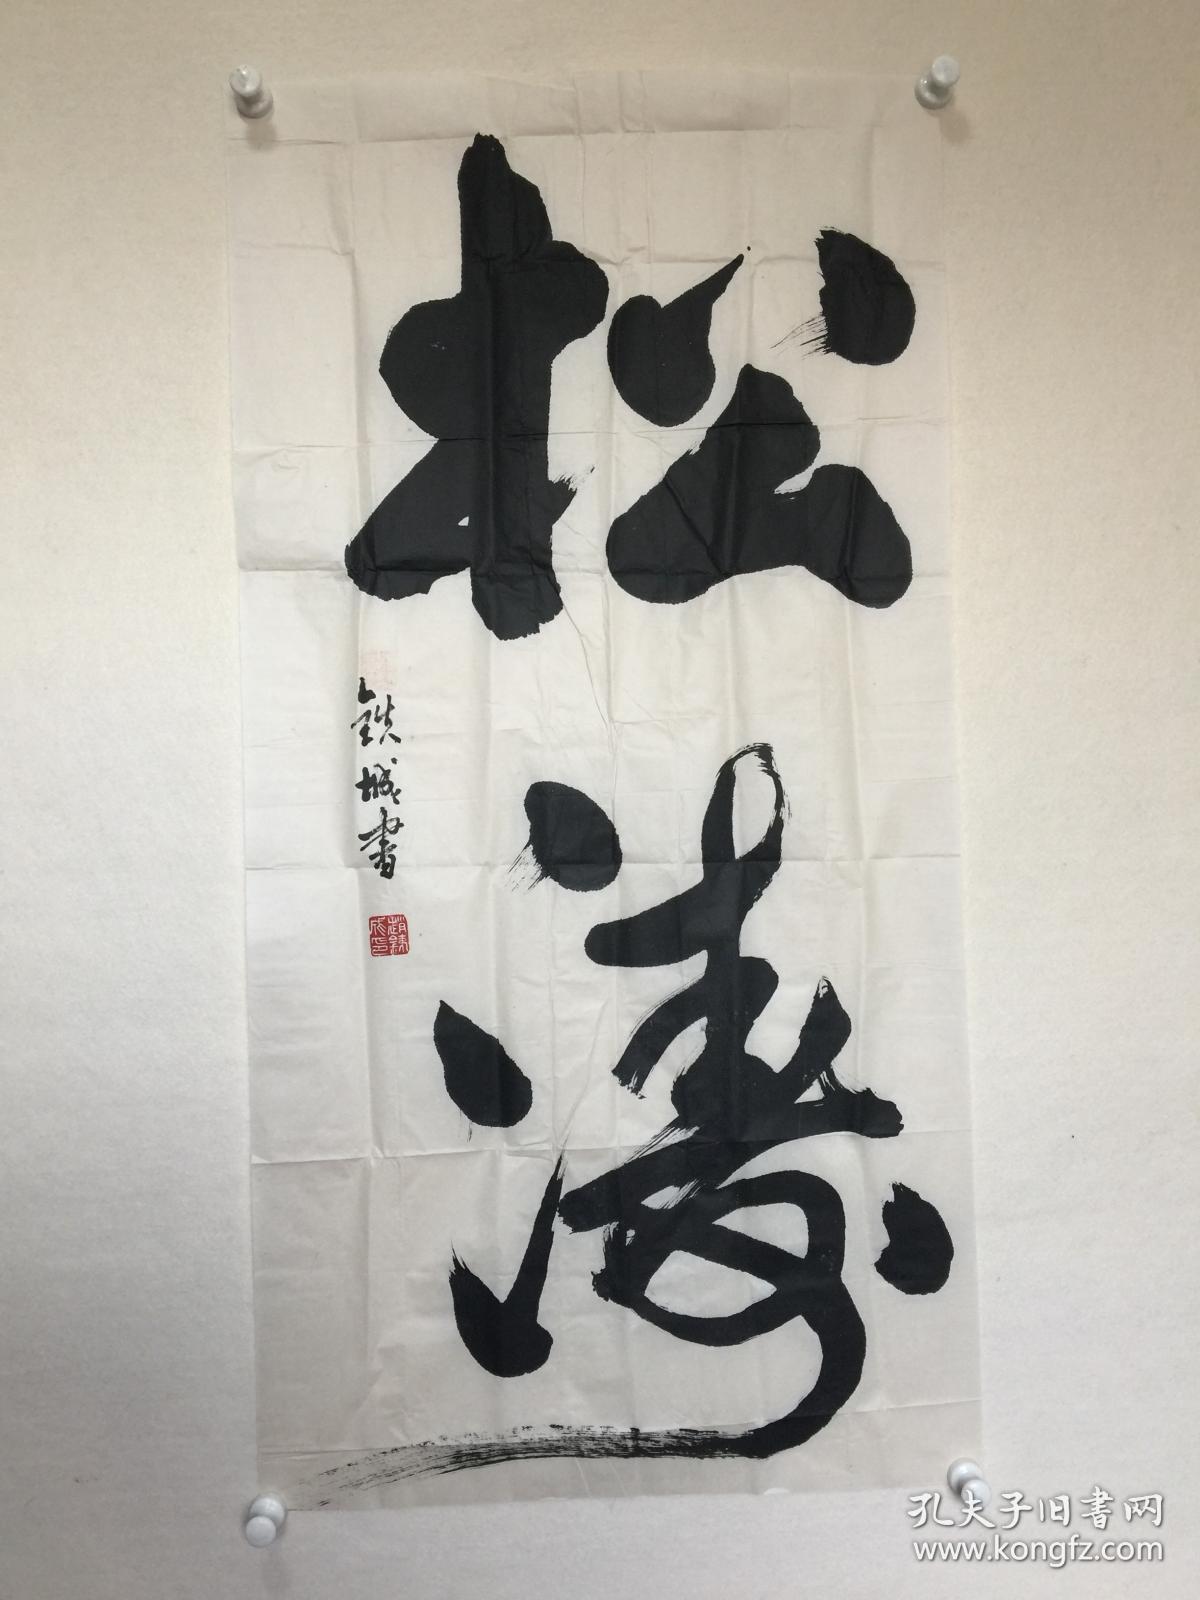 松涛
鐵城书
孔夫子旧书网
www.kongfz.com